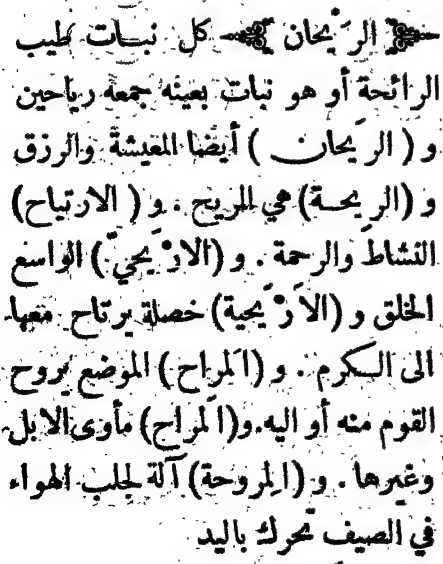 الرَيْحان كل نبات طيب
الرائحة أو هو نبات بعينه جمعه رياحين
و (الرَيحان) أيضا المعيشة والرزق
و (الريحة) هي الريح . و (الارتياح)
النشاط والرحمة . و (الارْيَحيّ) الواسع
الخلق و (الأرْيَحية) خصلة يرتاح معها
الى الكرم . و (المَراح) الموضع يروح
القوم منه أو اليه . و (المُراح) مأوى الابل
وغيرها . و (المِروحة) آلة لجلب الهواء
في الصيف تحرك باليد